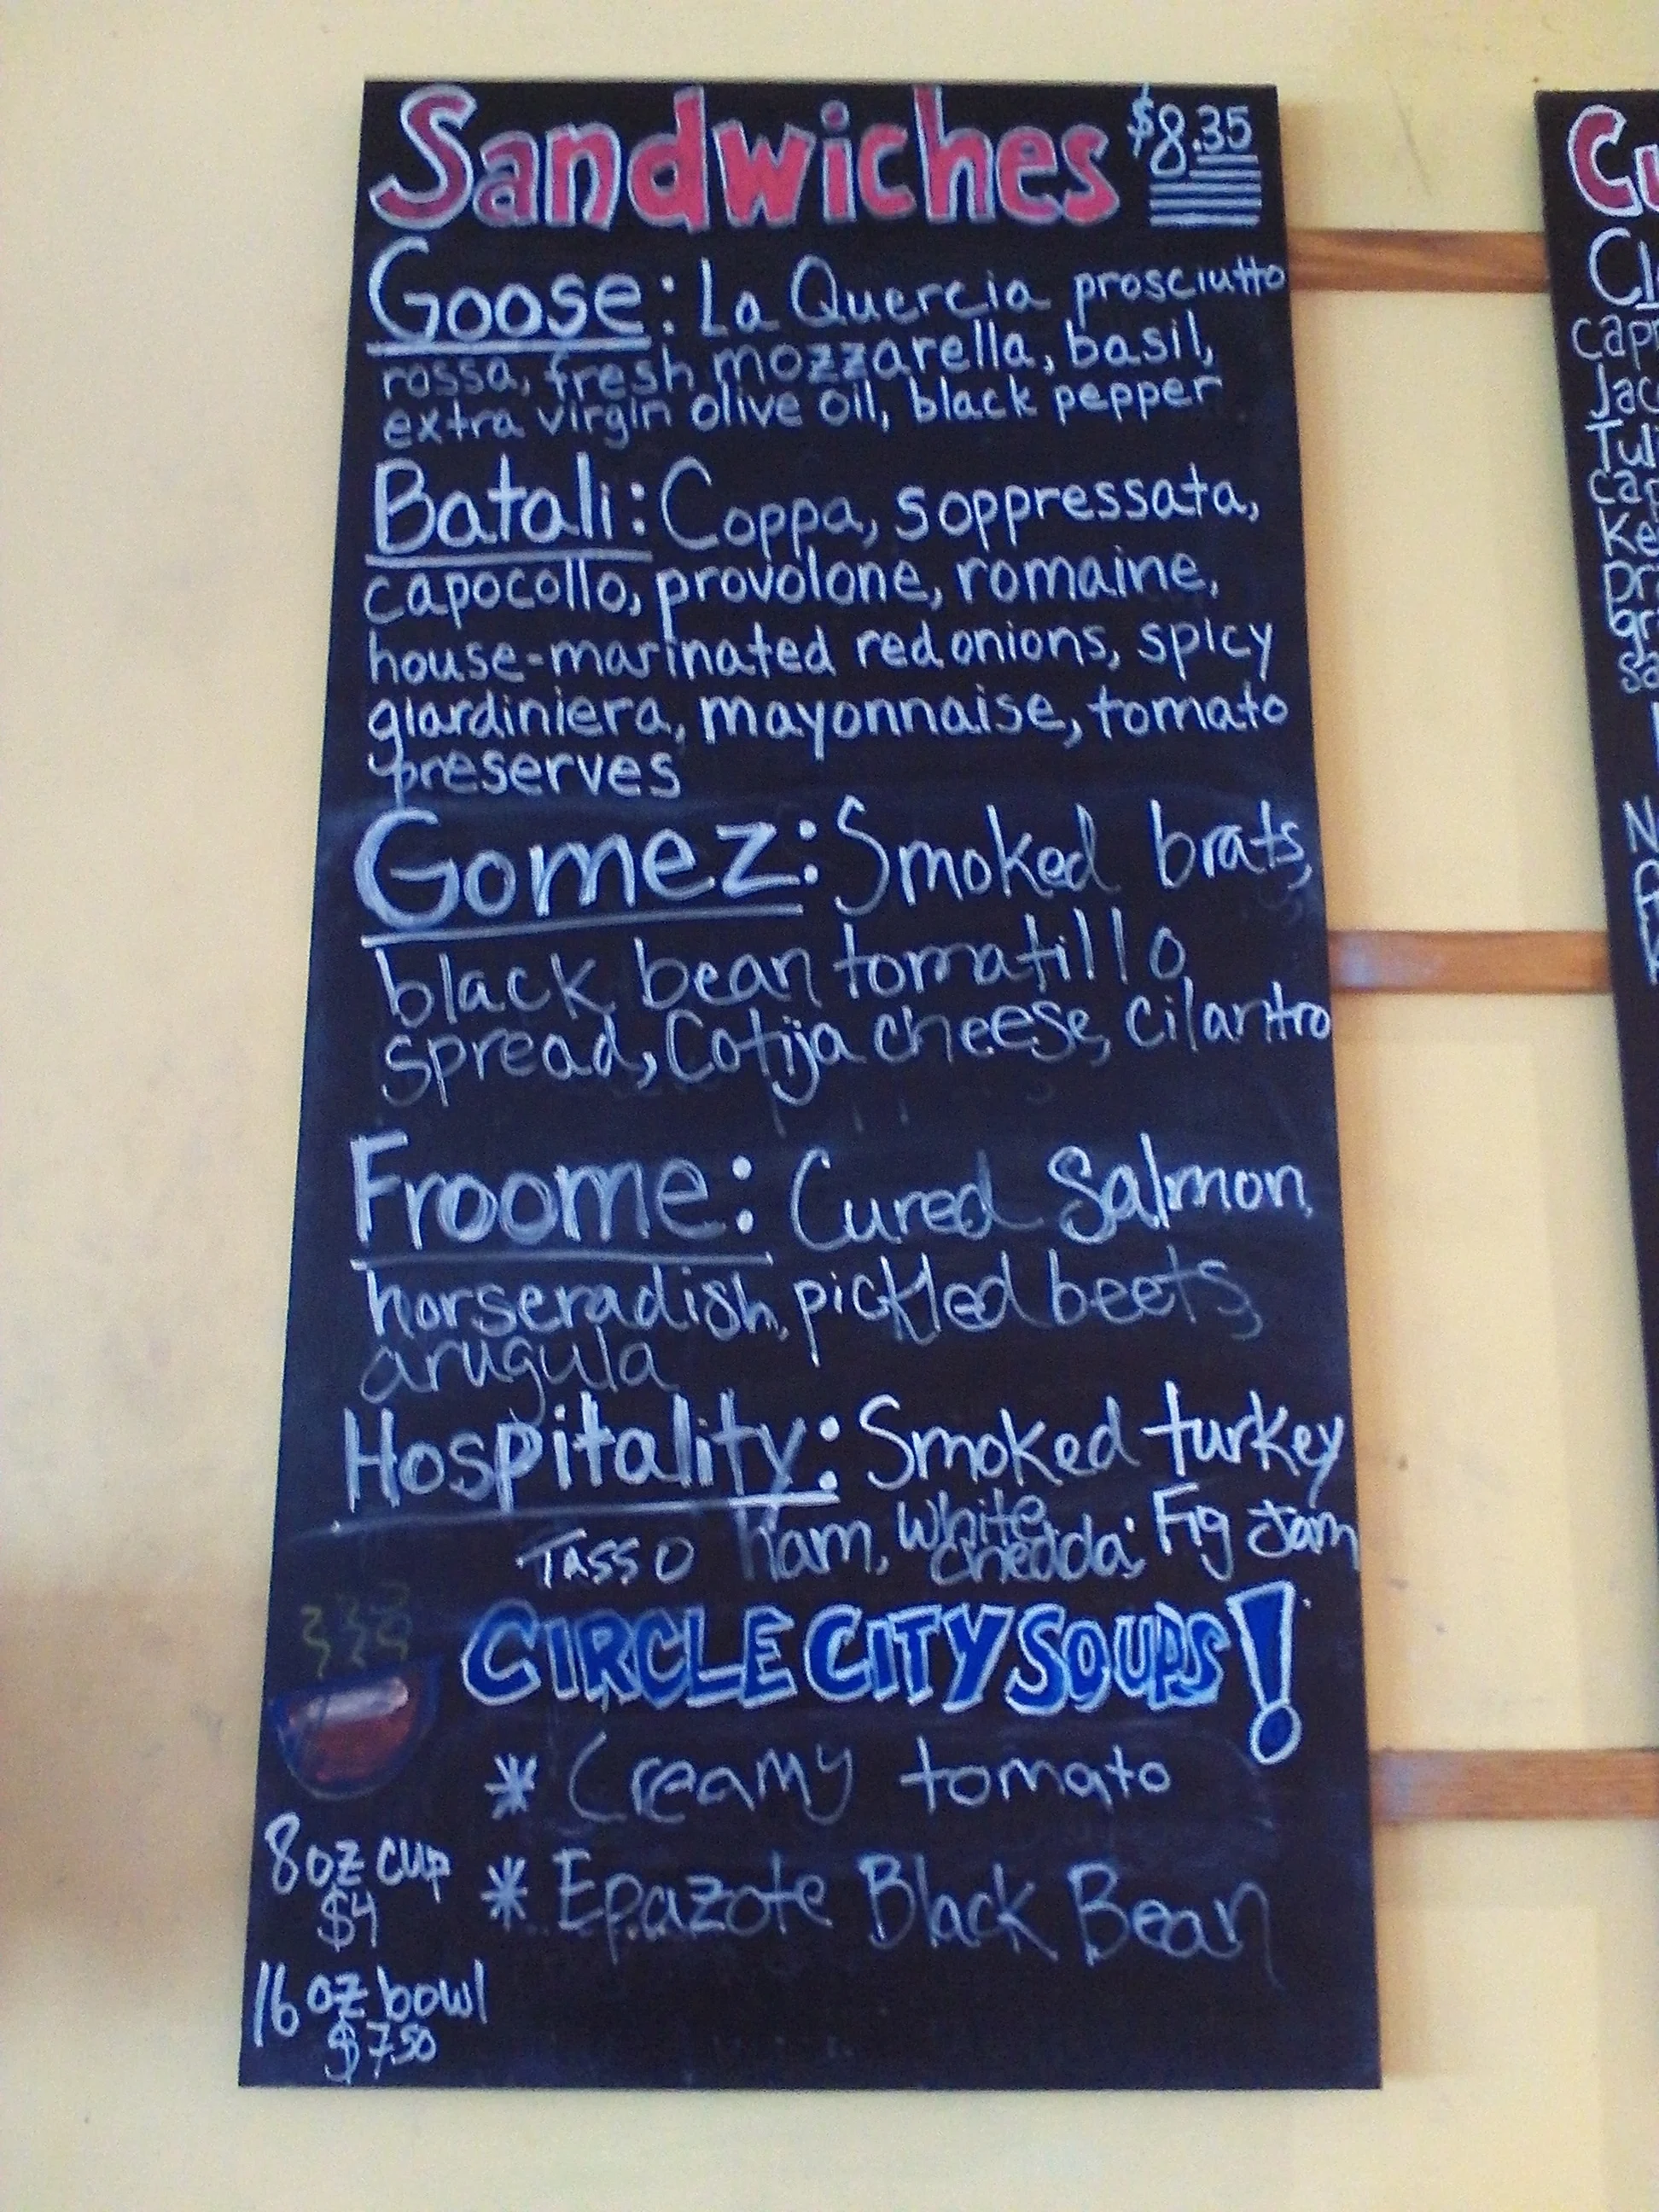 Sandwiches $8.35
Goose: La Quercia prosciutto
rossa, fresh mozzarella, basil,
extra virgin olive oil, black pepper
Batali: Coppa, soppressata,
capocollo, provolone, romaine,
house-marinated red onions, spicy
giardiniera, mayonnaise, tomato
preserves
Gomez: Smoked brats,
black bean tomatillo
spread, Cotija cheese, cilantro
Froome: Cured Salmon,
horseradish, pickled beets,
arugula
Hospitality: Smoked turkey
Tasso Ham, White
cheddar, Fig Jam
CIRCLE CITY SOUPS!
* Creamy tomato
* Epazote Black Bean
8oz cup
$4
16 oz bowl
$7.50
Cu
Cl
capr
Jac
Tuli
cap
Ke
pr
gr
sa
N